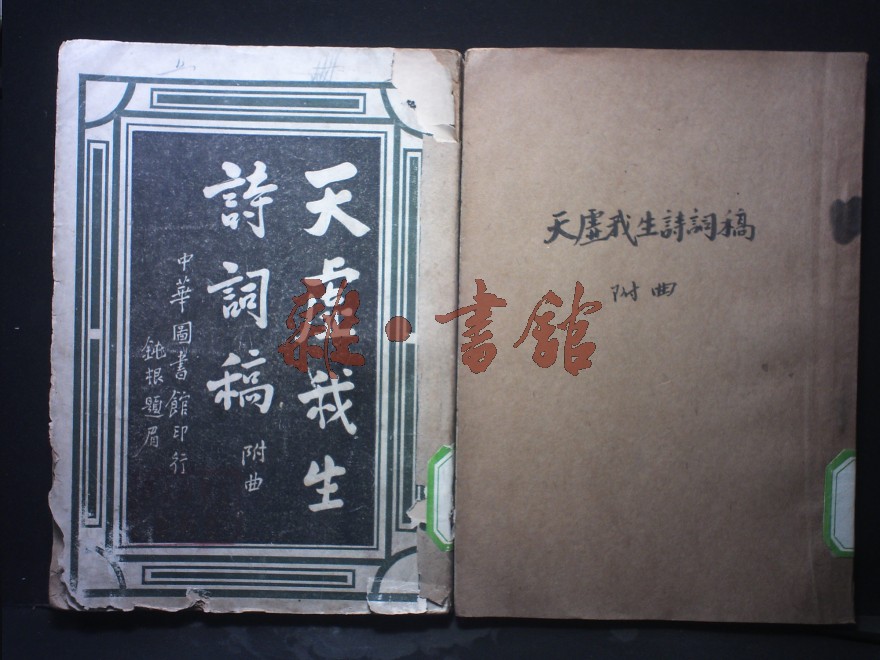 天虛我生
詩詞稿
附曲
中華圖書館印行
鈍根題眉
天虛我生詩詞稿
附曲
雜·書館